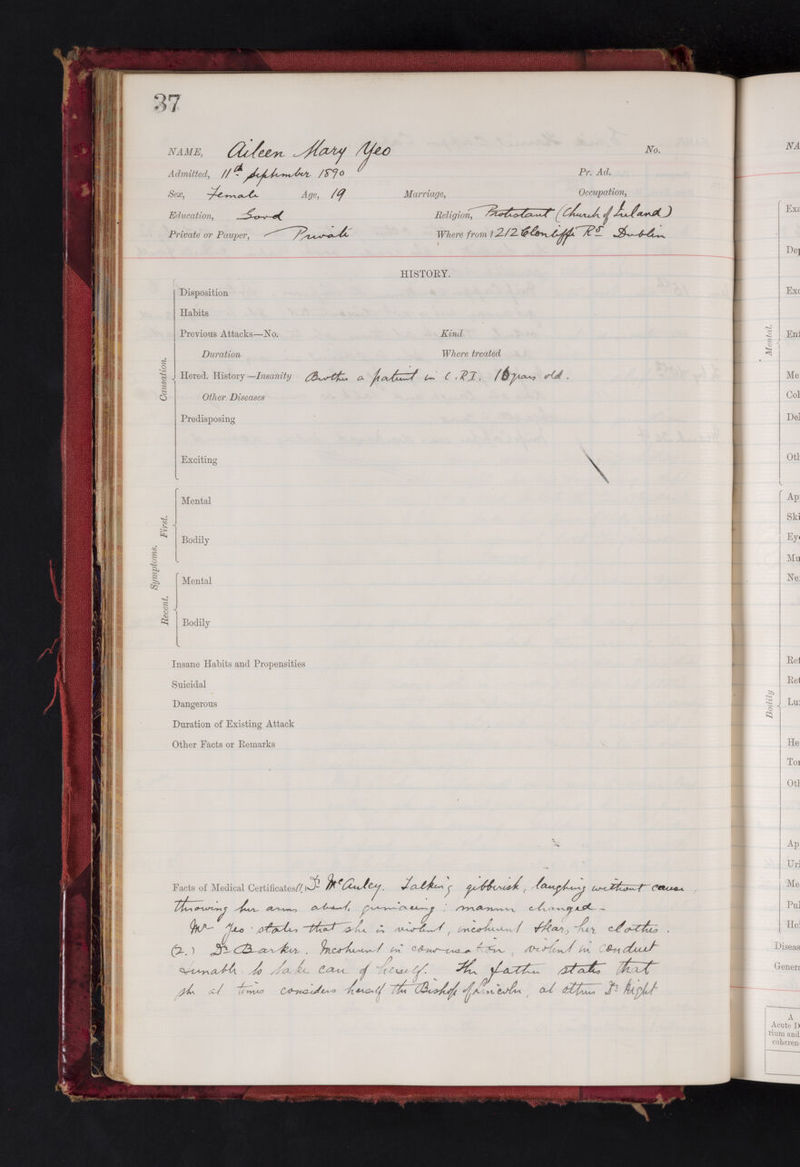 37
NAME, Aileen Mary Yeo No.
Admitted, 11th September 1890 Pr. Ad.
Sex, Female Age, 19 Marriage, Occupation,
Education, Good Religion, Protestant (Church of Ireland)
Private or Pauper, Private Where from 212 Clonliffe Rd Dublin
HISTORY.
Causation.
Disposition
Habits
Previous Attacks—No. Kind
Duration Where treated
Hered. History—Insanity Brother a patient in C.R.I. years old.
Other Diseases
Predisposing
Exciting
Symptoms.
First.
Mental
Bodily
Recent.
Mental
Bodily
Insane Habits and Propensities
Suicidal
Dangerous
Duration of Existing Attack
Other Facts or Remarks
Facts of Medical Certificates Dr McAuley. Talking gibberish, laughing without cause
throwing her arms about, grimacing; manner changed—
Mr Yeo states that she is violent, incoherent, her clothes.
(2.) Dr Barker. Incoherent in conversation, violent in conduct
unable to take care of herself. The father states that
she at times considers herself the Bishop of Lincoln, at others Dr Kight
NA
Exc
Dep
Exc
Ent
Mental.
Me
Col
Del
Oth
Ap
Ski
Eye
Mu
Ne
Ref
Ret
Bodily
Lu
He
Ton
Oth
Ap
Uri
Me
Pul
He
Diseas
Gener
A
Acute D
rium and
coheren